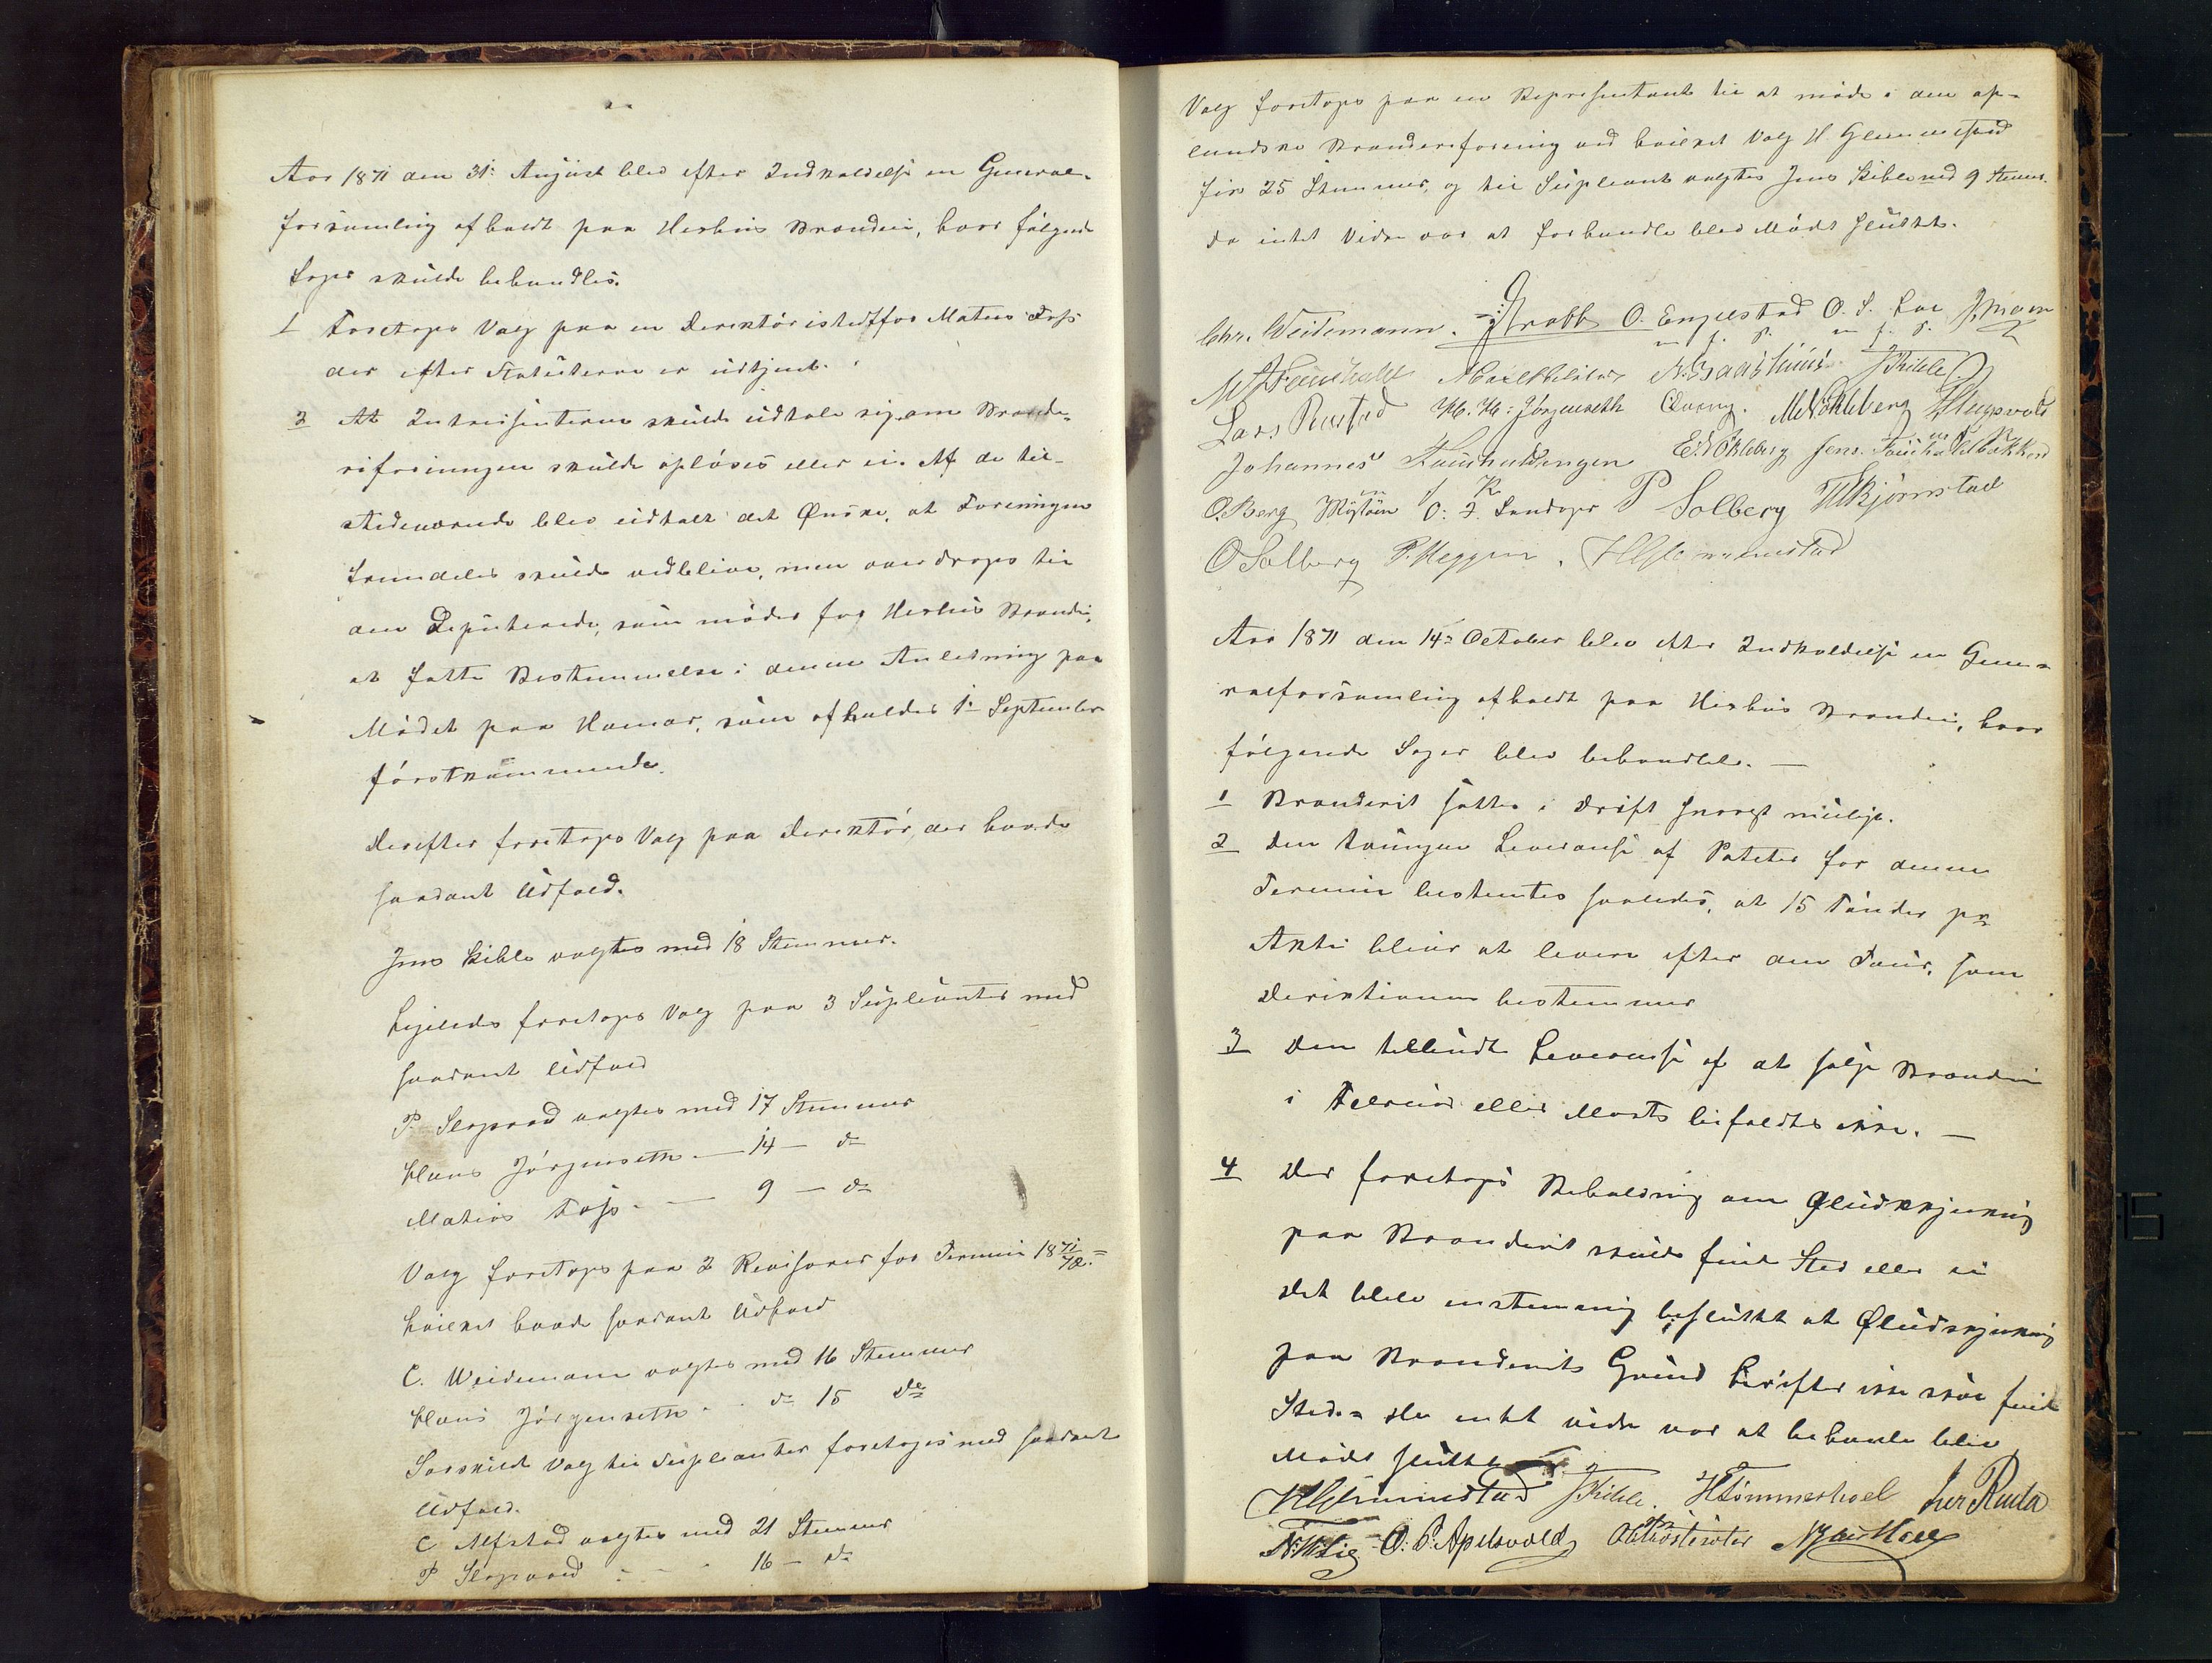 Aar 1871 den 31: August blev efter Indkaldelse en General-
forsamling afholdt paa Hexhus Brænderi, hvor følgende
Sager skulde behandles.
1 Foretages Valg paa en Derektør istedtfor Matias Foss
der efter Statuterne er udtjent.
2 At Intresenterne skulde udtale sig om Brænde-
riforeningen skulde opløses eller ei. Af de til-
stedeværende blev udtalt det Ønske, at Foreningen
fremdeles skulde vedblive, men overdrages til
den Deputerede, som møder for Hexhus Brænderi,
at fatte Bestemmelse i denne Anledning paa
Mødet paa Hamar, som afholdes 1: September
førstkommende.
Derefter foretoges Valg paa Derektør, der havde
saadant Udfald.
Jens Kihle valgtes med 18 Stemmer.
Ligeledes foretoges Valg paa 3 Supleanter med
saadant Udfald
P. Slagsvold valgtes med 17 Stemmer
Hans Jørgenseth — 14 — do
Matias Foss — 9 — do
Valg foretoges paa 2 Revisorer for Termin 1871/72
hvilket havde saadant Udfald
C. Weidemann valgtes med 16 Stemmer
Hans Jørgenseth do 15 do
Særskildt Valg til Supleanter foretoges med saadant
Udfald.
C Alfstad valgtes med 21 Stemmer
P Slagsvold 16 — do
Valg foretoges paa en Representant til at møde i den op-
landske Brænderiforening ved hvilket Valg H Glemmestad
fik 25 Stemmer, og til Supleant valgtes Jens Kihle med 9 Stemr.
Da intet videre var at forhandle blev Mødet sluttet.
Chr. Weidemann. Krabb O. Engelstad O. S. Lie
m. f. P. m f. P.
N. Baashuus JKihle
Lars Rustad H. H: Jørgenseth Qværn. M Økleberg
Johannes Fauchaldengen E. Økleberg Jens Fauchaldbakken
O. Berg O: J. Landager P Solberg HBjørnstad
O Solberg P. Heggen. HGlemmestad
Aar 1871 den 14de October blev efter Indkaldelse en Gene-
ralforsamling afholdt paa Hexhus Brænderi, hvor
følgende Sager blev behandlet. —
1 Brænderiet sættes i Drift snarest muligt.
2 Den tvungne Leveranse af Poteter for denne
Termin bestemtes saaledes, at 15 Tønder pr
Aktie bliver at levere efter den Tour, som
Derektionen bestemmer
3 Den tilbudte Leveranse af at sælge Brænderi
i Februar eller Marts bifaldtes ikke. —
4 Der foretoges Beholdning om Øludskjenkning
paa Brænderiet skulde finde Sted eller ei
Det blev enstemmig besluttet at Øludskjenkning
paa Brænderiets Grund herefter ikke skal finde
Sted. = Da intet videre var at behandle blev
Mødet sluttet
HGlemmestad JKihle. HTømmerhoel Iver Rusla
N. Lie O. P. Apelsvold